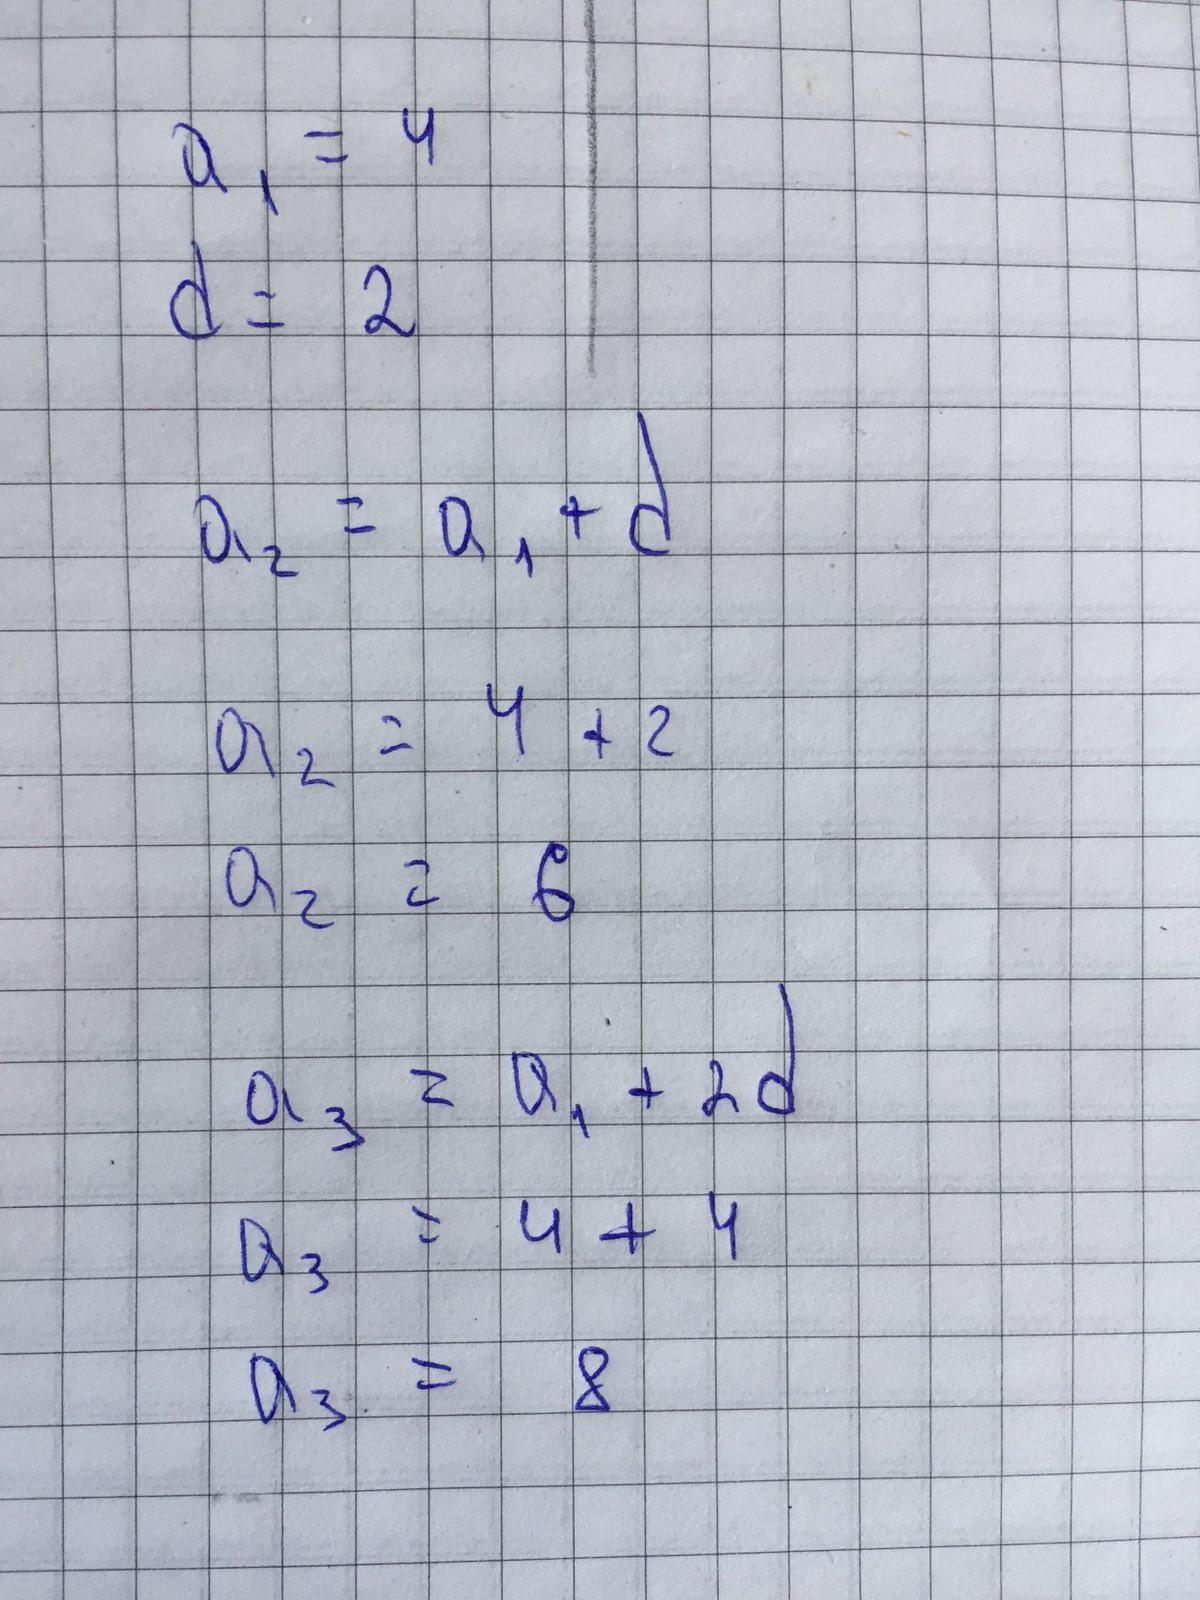 a₁ = 4
d = 2
a₂ = a₁ + d
a₂ = 4 + 2
a₂ = 6
a₃ = a₁ + 2d
a₃ = 4 + 4
a₃ = 8